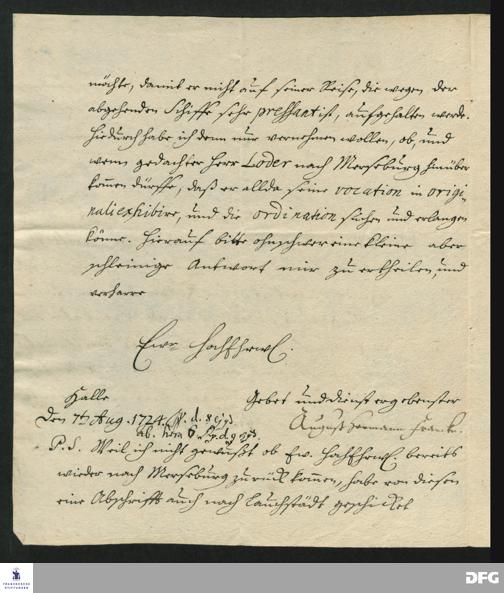 möchte, damit er nicht auf seiner Reise, die wegen der
abgehenden Schiffe sehr pressant ist, aufgehalten werde.
Hiedurch habe ich denn nur vernehmen wollen, ob, und
wenn gedachter Herr Loder nach Merseburg hinüber
kommen dürffe, daß er allda seine vocation in origi-
nali exhibire, und die ordination suchen und erlangen
könne. Hierauf bitte ohnschwer eine kleine aber
schleinige Antwort mir zu ertheilen, und
verharre
Ewr HochEhrwl.
Halle
Den 7ten Aug. 1724.
Gebet und dienst ergebenster
d. 8
ab. hora 6
d. 9
August Hermann Franck.
P. S. Weil ich nicht gewußt ob Ew. HochEhrwl. bereits
wieder nach Merseburg zurück kommen, habe von diesen
eine Abschrifft auch nach Lauchstädt geschicket
FRANCKESCHE
STIFTUNGEN
DFG